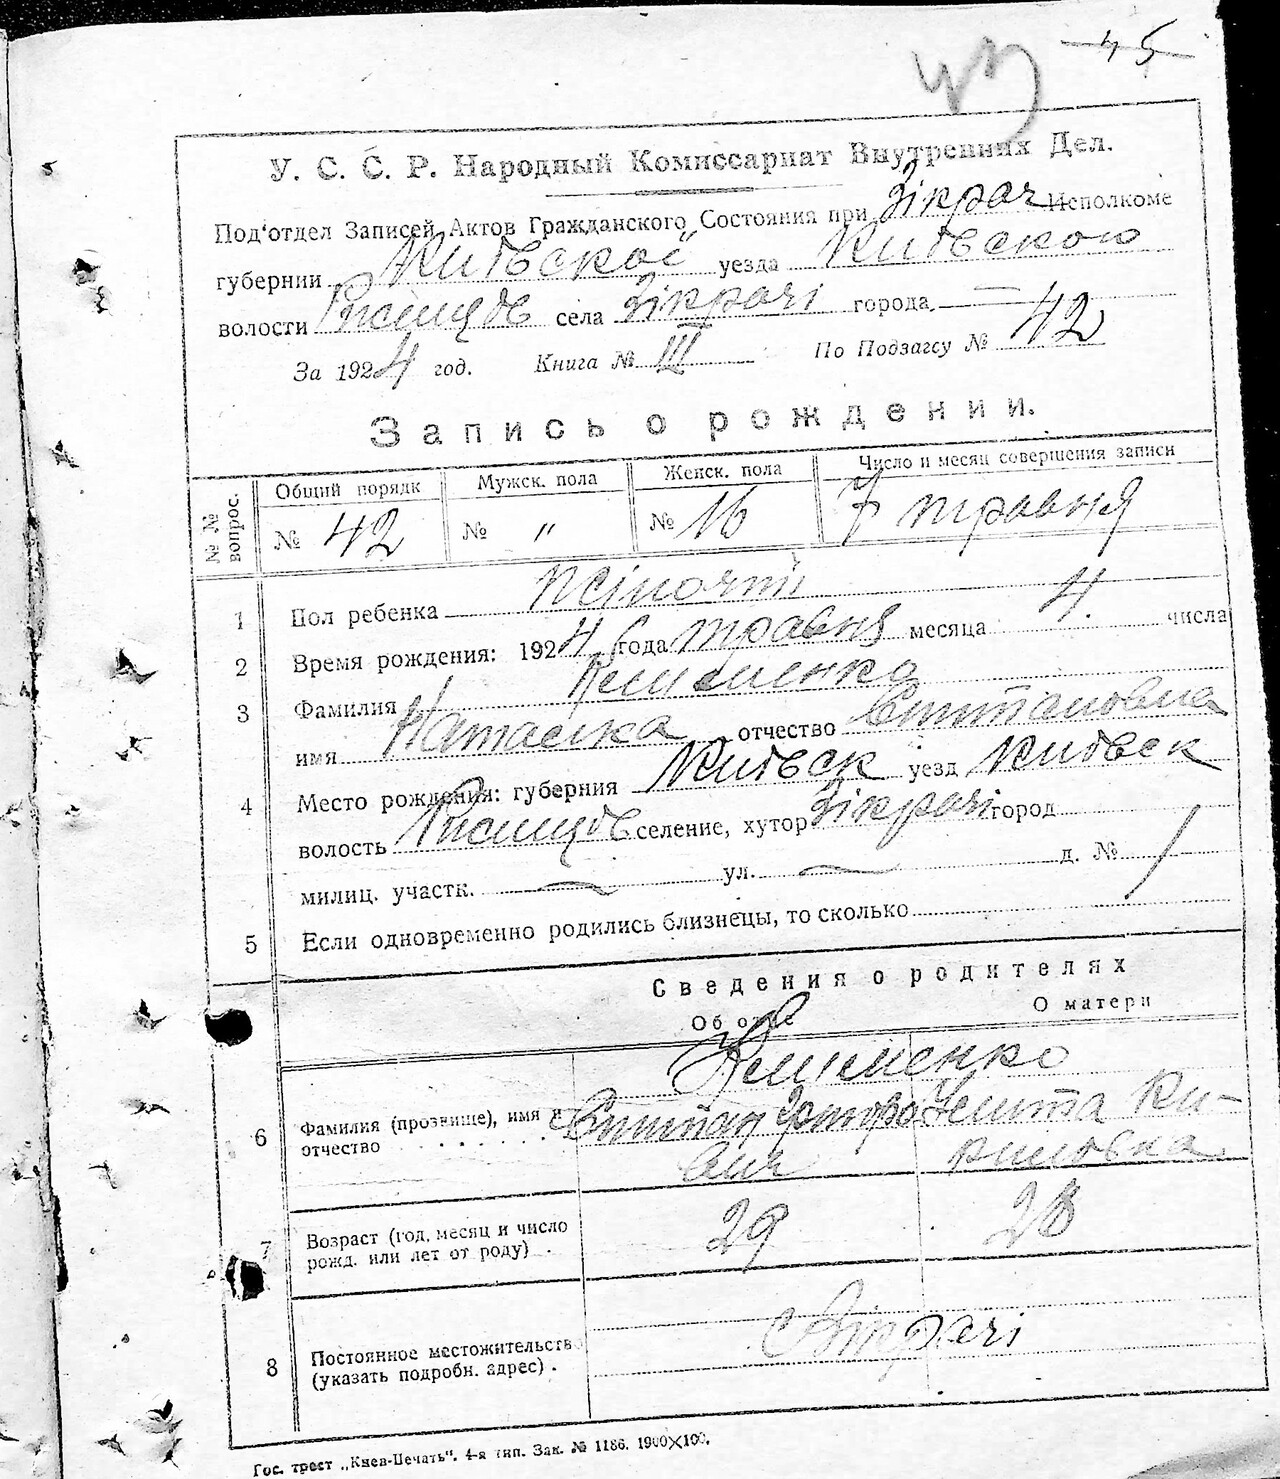 45
43
У. С. С. Р. Народный Комиссариат Внутренних Дел.
Под'отдел Записей Актов Гражданского Состояния при Зікрач Исполкоме
губернии Київської уезда Київского
волости Ржищев села Зікрачі города —
За 1924 год. Книга № III По Подзагсу № 42
Запись о рождении.
№ № вопрос. Общий порядк Мужск. пола Женск. пола Число и месяц совершения записи
№ 42 № " № 16 7 травня
1 Пол ребенка жіночті
2 Время рождения: 1924 года травня месяца 4. числа
3 Фамилия
имя Наталка отчество Степановна
4 Место рождения: губерния Київськ уезд Київськ
волость Ржищев селение, хутор Зікрачі город
милиц. участк. — ул. — д. №
5 Если одновременно родились близнецы, то сколько
Сведения о родителях
Об отце О матери
6 Фамилия (прозвище), имя и отчество
Степан
7 Возраст (год, месяц и число рожд. или лет от роду) . 29 28
8 Постоянное местожительств (указать подробн. адрес) . с Зікрачі
Гос. трест „Киев-Печать". 4-я тип. Зак. № 1186. 1900×100.